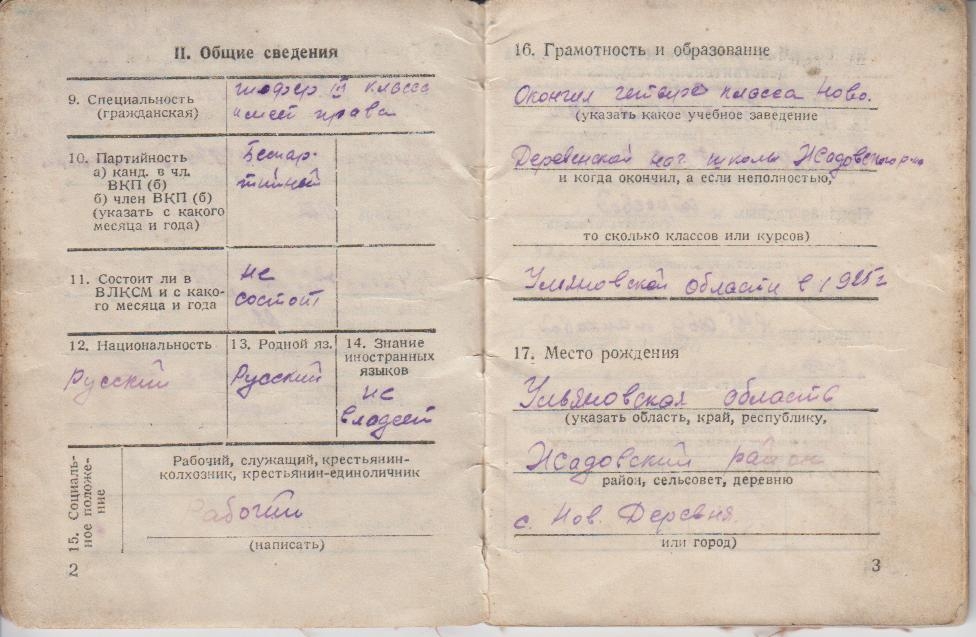 II. Общие сведения
9. Специальность
(гражданская)
шофер III класса
имеет права
10. Партийность
а) канд. в чл.
ВКП (б)
б) член ВКП (б)
(указать с какого
месяца и года)
Беспар-
тийный
11. Состоит ли в
ВЛКСМ и с како-
го месяца и года
не
состоит
12. Национальность
Русский
13. Родной яз.
Русский
14. Знание
иностранных
языков
не
владеет
15. Социаль-
ное положе-
ние
Рабочий, служащий, крестьянин-
колхозник, крестьянин-единоличник
Рабочий
(написать)
2
16. Грамотность и образование
Окончил четыре класса Ново.
(указать какое учебное заведение
Деревенской нач. школы Жадовского р-на
и когда окончил, а если неполностью,
то сколько классов или курсов)
Ульяновской области в 1925 г
17. Место рождения
Ульяновская область
(указать область, край, республику,
Жадовский район
район, сельсовет, деревню
с. Нов. Деревня
или город)
3